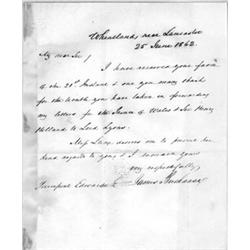 Wheatland, near Lancaster
25 June 1862.
My dear Sir/
I have received your favor
of the 20th Instant & owe you many thanks
for the trouble you have taken in forwarding
my letters for the Prince of Wales & Sir Henry
Holland to Lord Lyons.
Miss Lane desires me to present her
kind regards to you & I remain yours
very respectfully,
James Buchanan